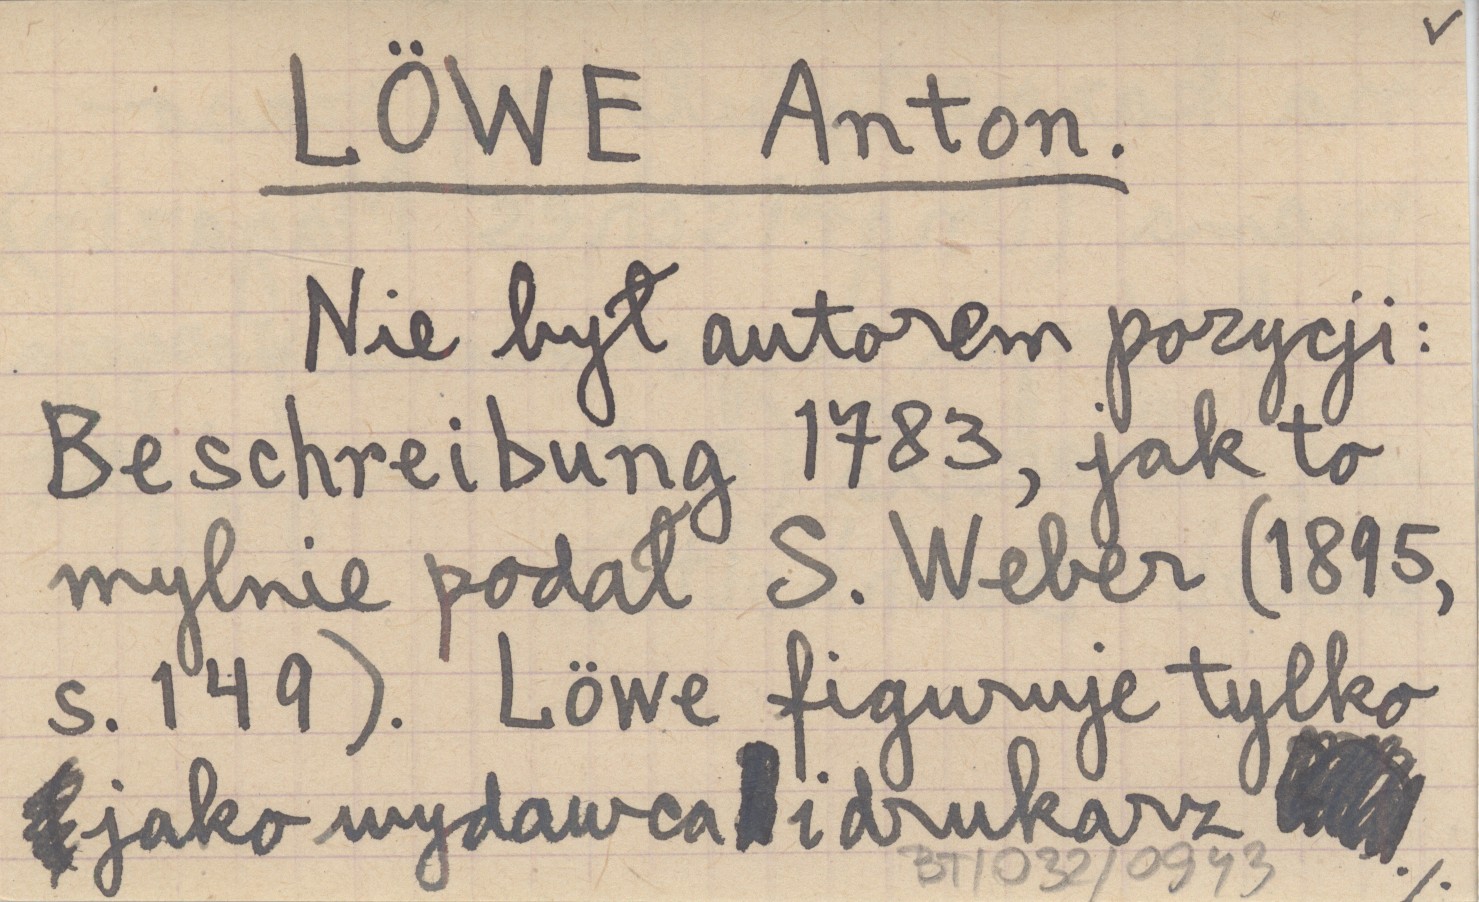 LÖWE Anton.
Nie był autorem pozycji:
Beschreibung 1783, jak to
mylnie podał S. Weber (1895,
s. 149). Löwe figuruje tylko
jako wydawca i drukarz
./.
BT/032/0943